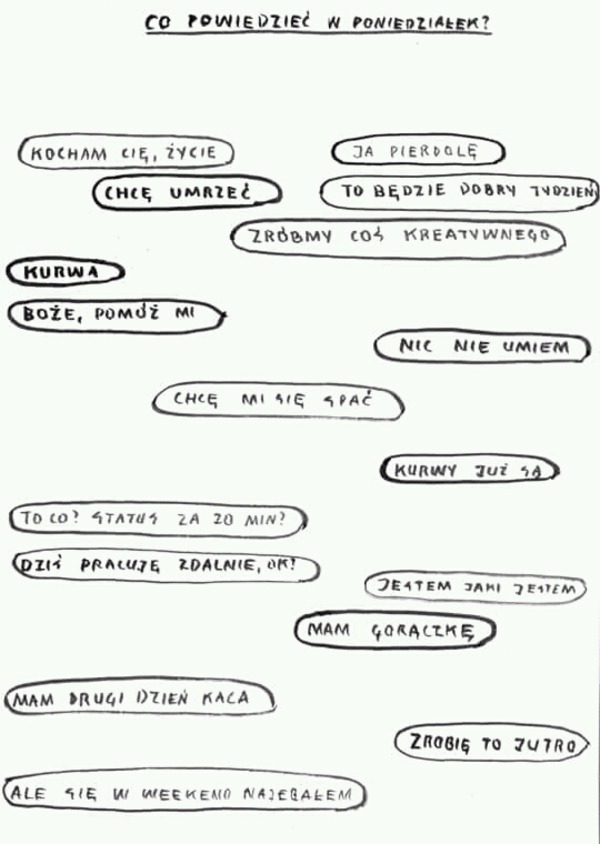 CO POWIEDZIEĆ W PONIEDZIAŁEK?
KOCHAM CIĘ, ŻYCIE
JA PIERDOLĘ
CHCĘ UMRZEĆ
TO BĘDZIE DOBRY TYDZIEŃ
ZRÓBMY COŚ KREATYWNEGO
KURWA
BOŻE, POMÓŻ MI
NIC NIE UMIEM
CHCĘ MI SIĘ SPAĆ
KURWY JUŻ SĄ
TO CO? STATUS ZA 20 MIN?
DZIŚ PRACUJĘ ZDALNIE, OK?
JESTEM JAKI JESTEM
MAM GORĄCZKĘ
MAM DRUGI DZIEŃ KACA
ZROBIĘ TO JUTRO
ALE SIĘ W WEEKEND NAJEBAŁEM